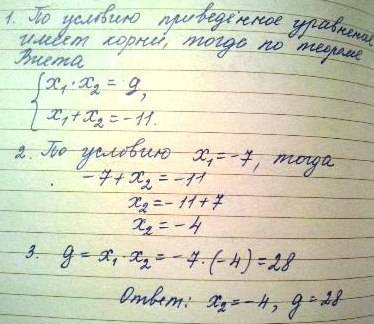 1. По условию приведённое уравнение
имеет корни, тогда по теореме
Виета
x₁·x₂ = g,
x₁+x₂ = -11.
2. По условию x₁=-7, тогда
-7+x₂ = -11
x₂=-11+7
x₂ = -4
3. g = x₁·x₂ = -7·(-4) = 28
Ответ: x₂=-4, g=28